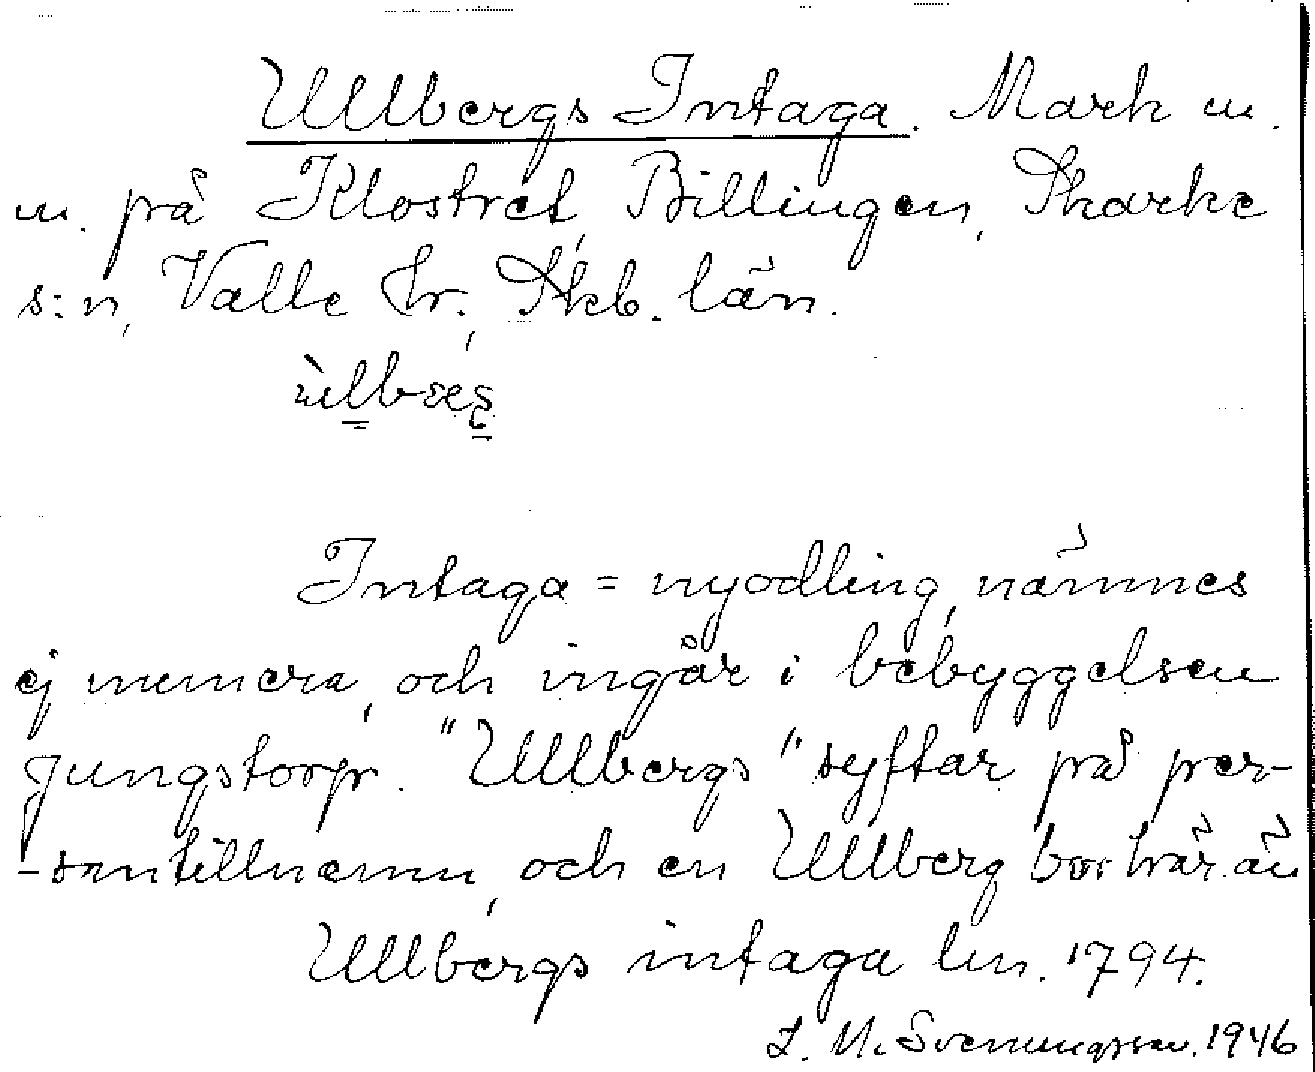 Ullbergs Intaga. Mark m.
m. på Klostret, Billingen, Skarke
s:n, Valle hr., Skb. län.
ùlbræs̨
Intaga = nyodling, nämnes
ej numera, och ingår i bebyggelsen
Jungstorp. "Ullbergs" syftar på per-
-sontillnamn, och en Ullberg bor här än
Ullbergs intaga lm. 1794.
L. M. Svenungsson. 1946